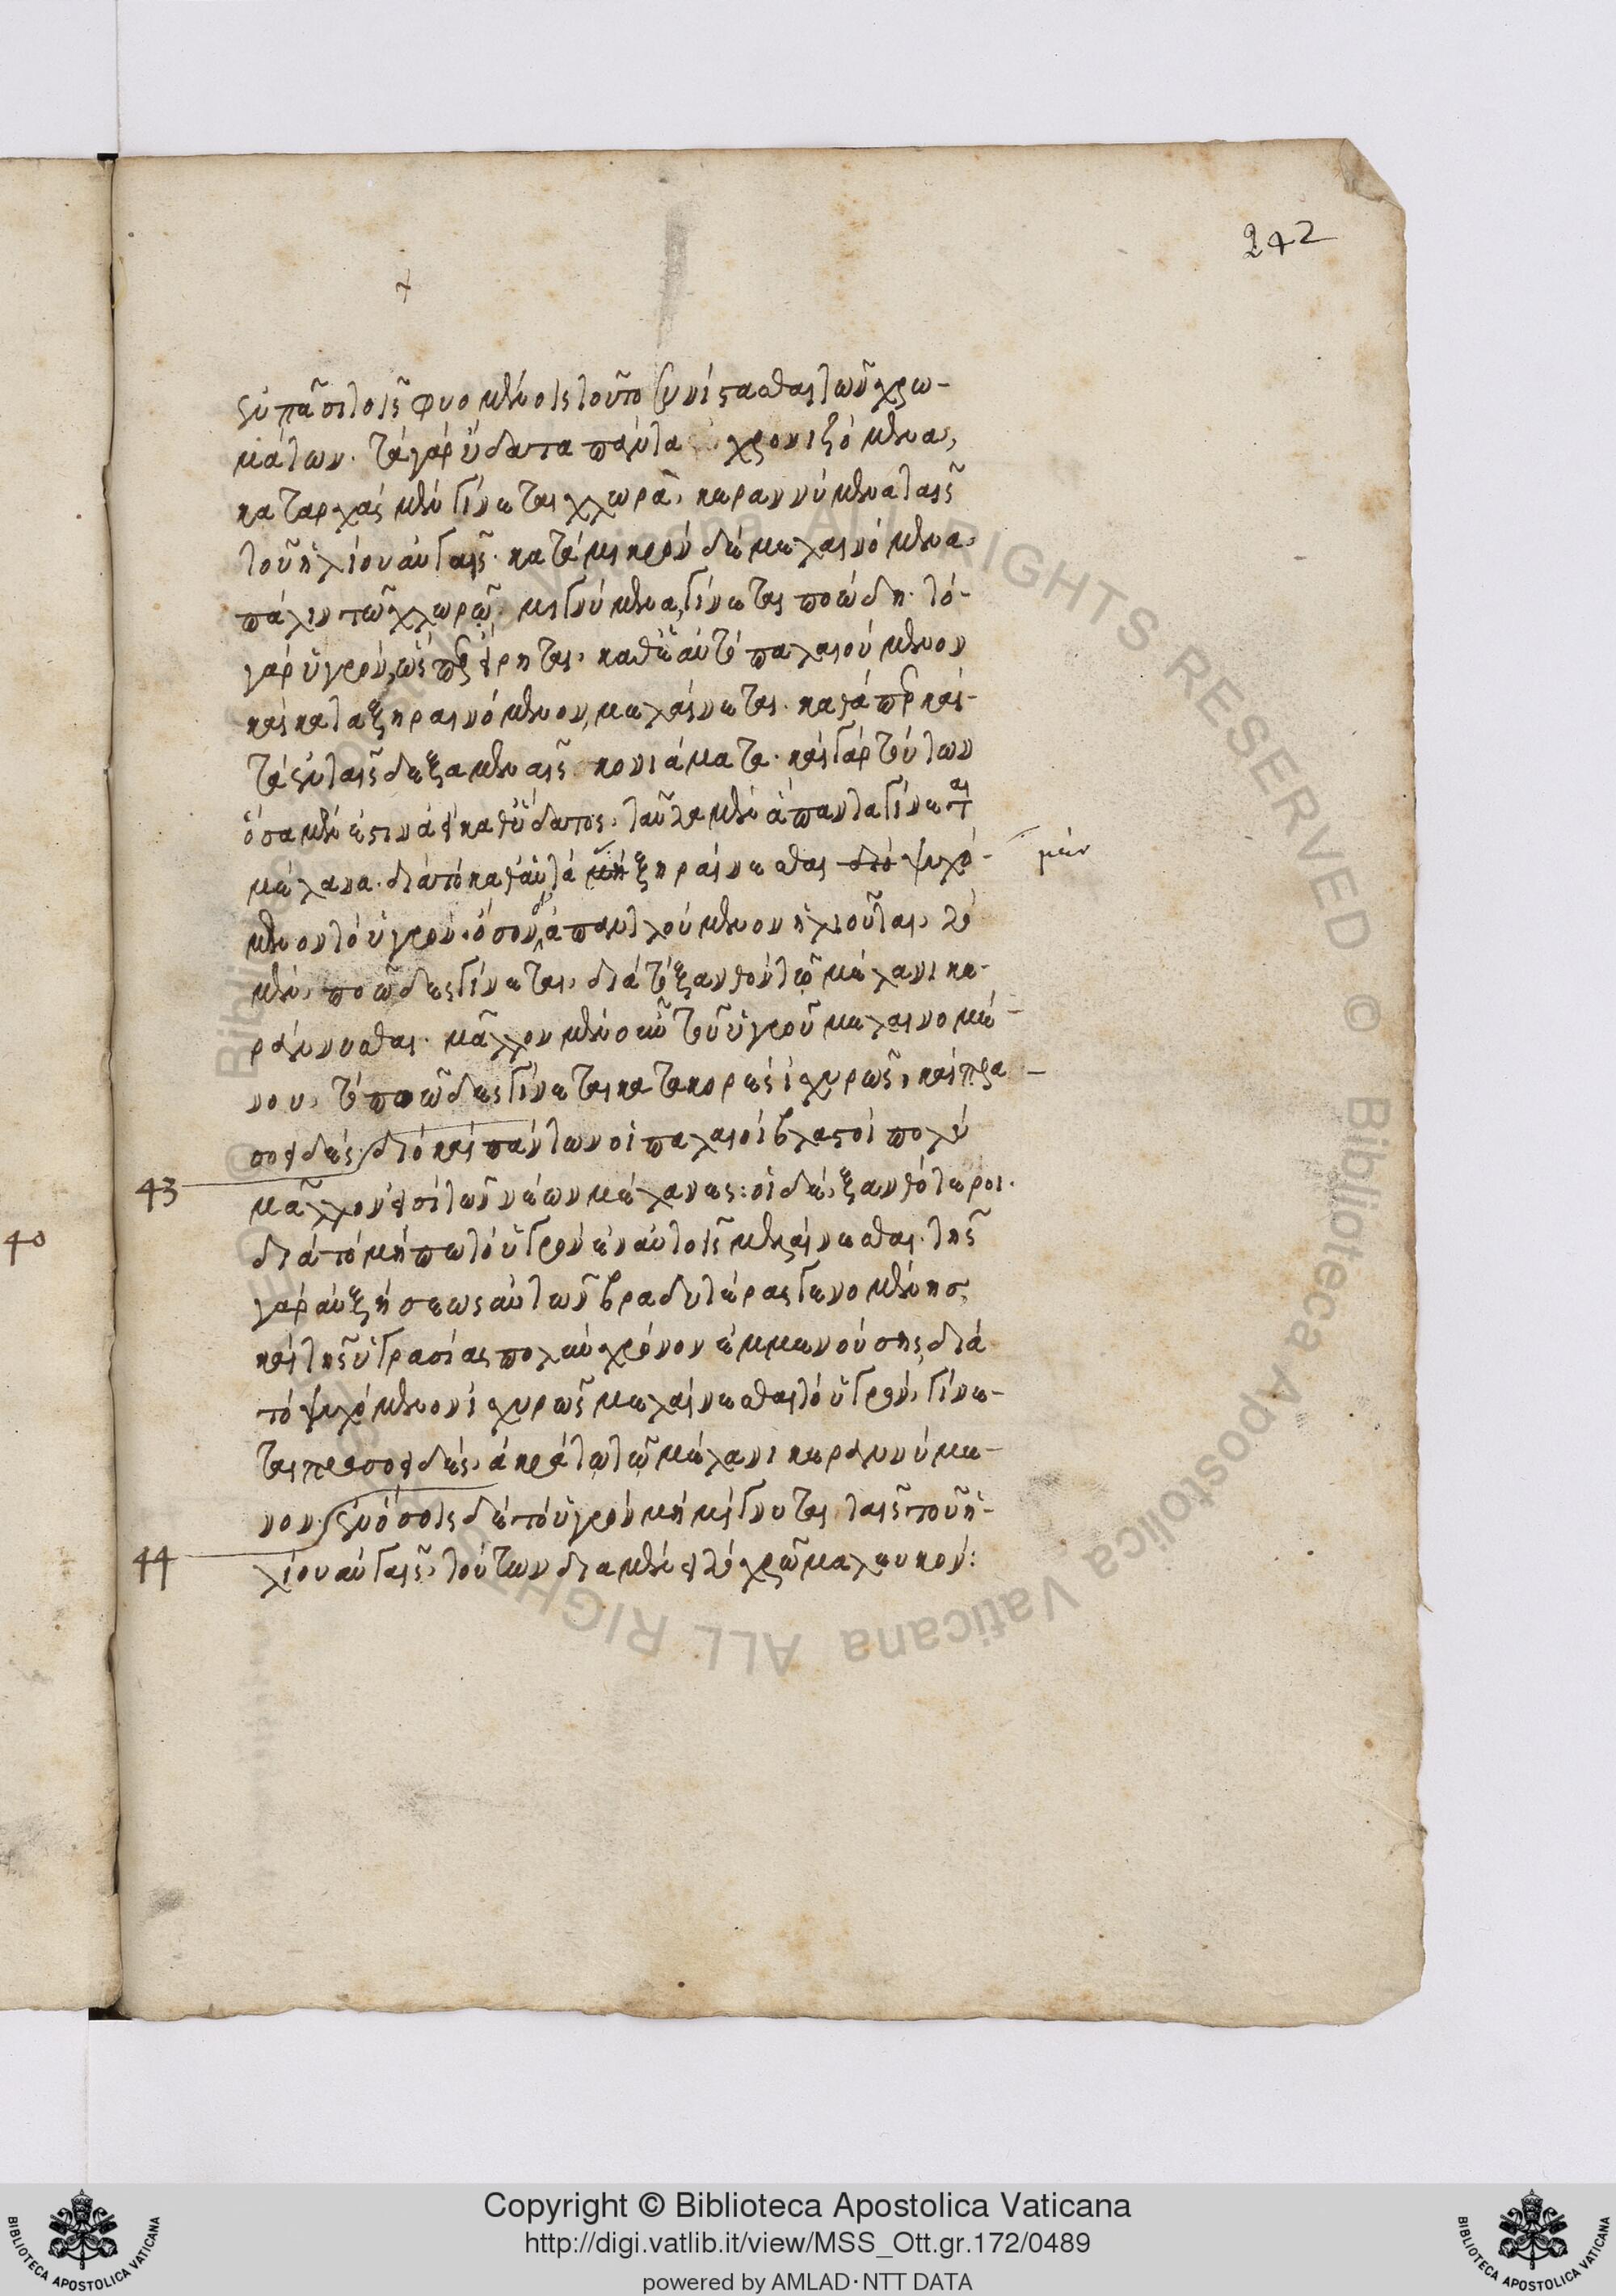 242
ἐν πᾶσι τοῖς φυομένοις τοῦτο συνίστασθαι τῶν χρω-
μάτων. τὰ γὰρ ὕδατα πάντα χρονιζόμενα,
κατ' ἀρχὰς μὲν γίνεται χλωρά, κεραννύμενα ταῖς
τοῦ ἡλίου αὐγαῖς. κατὰ μικρὸν δὲ μελαινόμενα,
πάλιν τῷ χλωρῷ μιγνύμενα, γίνεται ποώδη. τὸ
γὰρ ὑγρὸν, ὥσπερ εἴρηται, καθ' ἑαυτὸ παλαιούμενον
καὶ καταξηραινόμενον, μελαίνεται. καθάπερ καὶ
τὰ ἐν ταῖς δεξαμεναῖς κονιάματα. καὶ γὰρ τούτων
ὅσα μέν ἐστιν ἀεὶ καθ' ὕδατος, ταῦτα μὲν ἅπαντα γίνεται
μέλανα. διὰ τὸ καθ' αὑτὰ ξηραίνεσθαι ψυχό-
μὲν
μενον τὸ ὑγρόν. ὅσον δ' ἀπαντλούμενον ἡλιοῦται, τὸ
μὲν, ποῶδες γίνεται, διὰ τὸ ξανθὸν τῷ μέλανι κε-
ράννυσθαι. μᾶλλον μὲν οὖν τοῦ ὑγροῦ μελαινομέ-
νου, τὸ ποῶδες γίνεται κατακορὲς ἰσχυρῶς, καὶ πρα-
σοειδές. διὸ καὶ πάντων οἱ παλαιοὶ βλαστοὶ πολὺ
43
μᾶλλον εἰσὶ τῶν νέων μέλανες: οἱ δὲ, ξανθότεροι.
διὰ τὸ μήπω τὸ ὑγρὸν ἐν αὐτοῖς μελαίνεσθαι. τῆς
40
γὰρ αὐξήσεως αὐτῶν βραδυτέρας γενομένης
καὶ τῆς ὑγρασίας πολὺν χρόνον ἐμμενούσης, διὰ
τὸ ψυχόμενον ἰσχυρῶς μελαίνεσθαι τὸ ὑγρόν, γίνε-
ται πρασοειδὲς, ἀκράτῳ τῷ μέλανι κεραννύμε-
νον. ἐν ὅσοις δὲ τὸ ὑγρὸν μὴ μίγνυται ταῖς τοῦ ἡ-
44
λίου αὐγαῖς, τούτων διαμένει τὸ χρῶμα λευκόν:
Copyright © Biblioteca Apostolica Vaticana
http://digi.vatlib.it/view/MSS_Ott.gr.172/0489
powered by AMLAD·NTT DATA
BIBLIOTECA APOSTOLICA VATICANA
BIBLIOTECA APOSTOLICA VATICANA
© Biblioteca Apostolica Vaticana ALL RIGHTS RESERVED